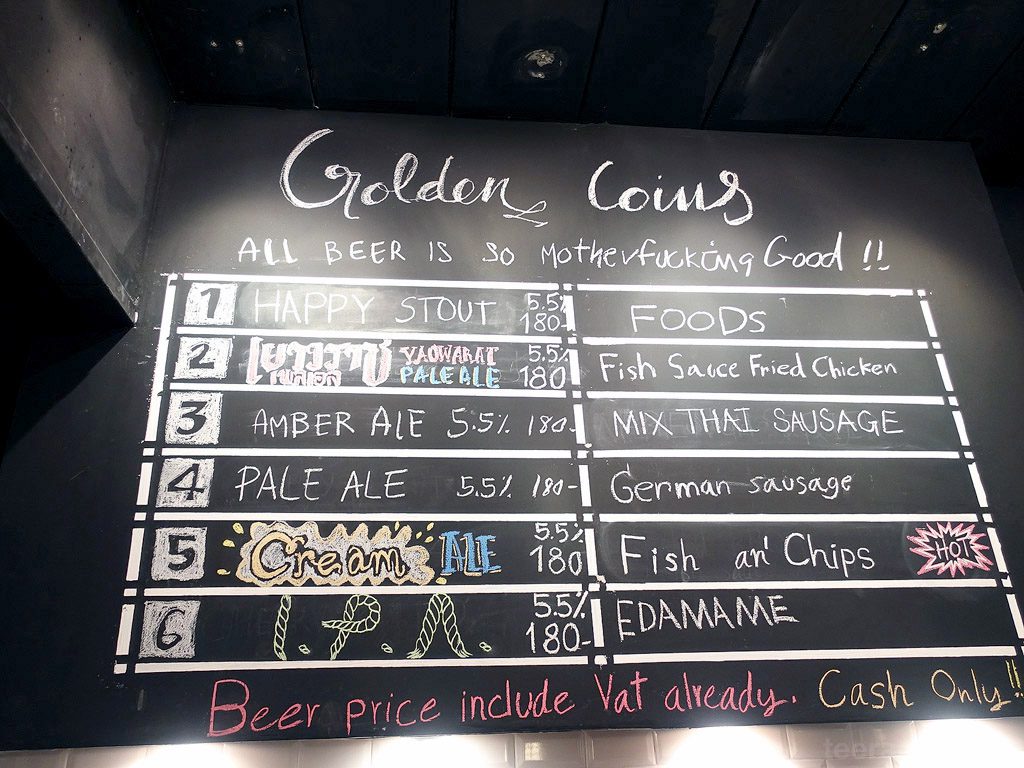 Golden Coins
ALL BEER IS SO Motherfucking Good !!
1 HAPPY STOUT 5.5% 180-
FOODS
2 เยาวราช UNION YAOWARAT PALE ALE 5.5% 180
Fish Sauce Fried Chicken
3 AMBER ALE 5.5% 180-
MIX THAI SAUSAGE
4 PALE ALE 5.5% 180-
German sausage
5 Cream ALE 5.5% 180
Fish an' Chips HOT
6 I.P.A. 5.5% 180-
EDAMAME
Beer price include Vat already. Cash Only!!